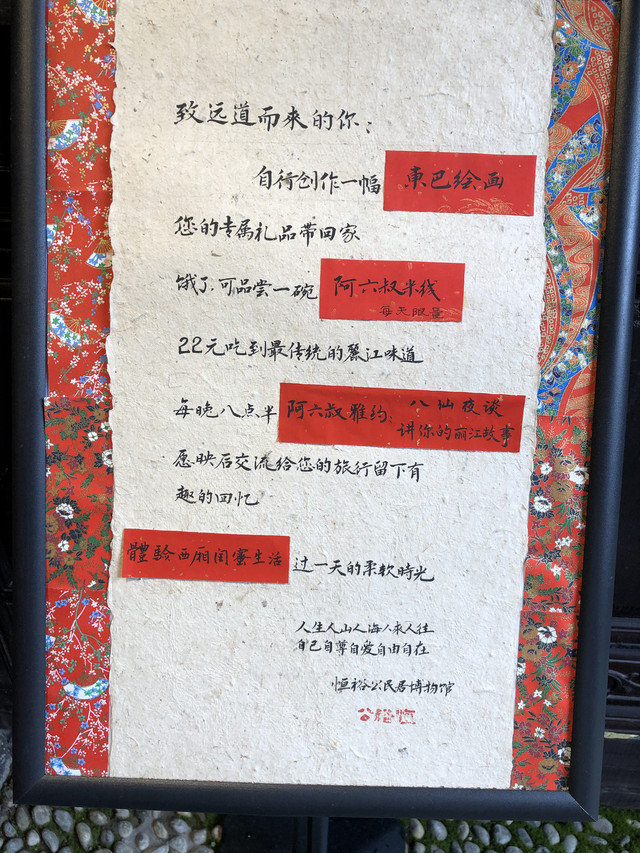 致远道而来的你：
自行创作一幅 東巴绘画
您的专属礼品带回家
饿了,可品尝一碗 阿六叔米线
每天限量
22元吃到最传统的麗江味道
每晚八点半 阿六叔雅约、八仙夜谈
讲你的丽江故事
愿映后交流给您的旅行留下有
趣的回忆
體驗西厢闺蜜生活 过一天的柔软時光
人生人山人海人來人往
自己自尊自爱自由自在
恒裕公民居博物馆
公裕恒